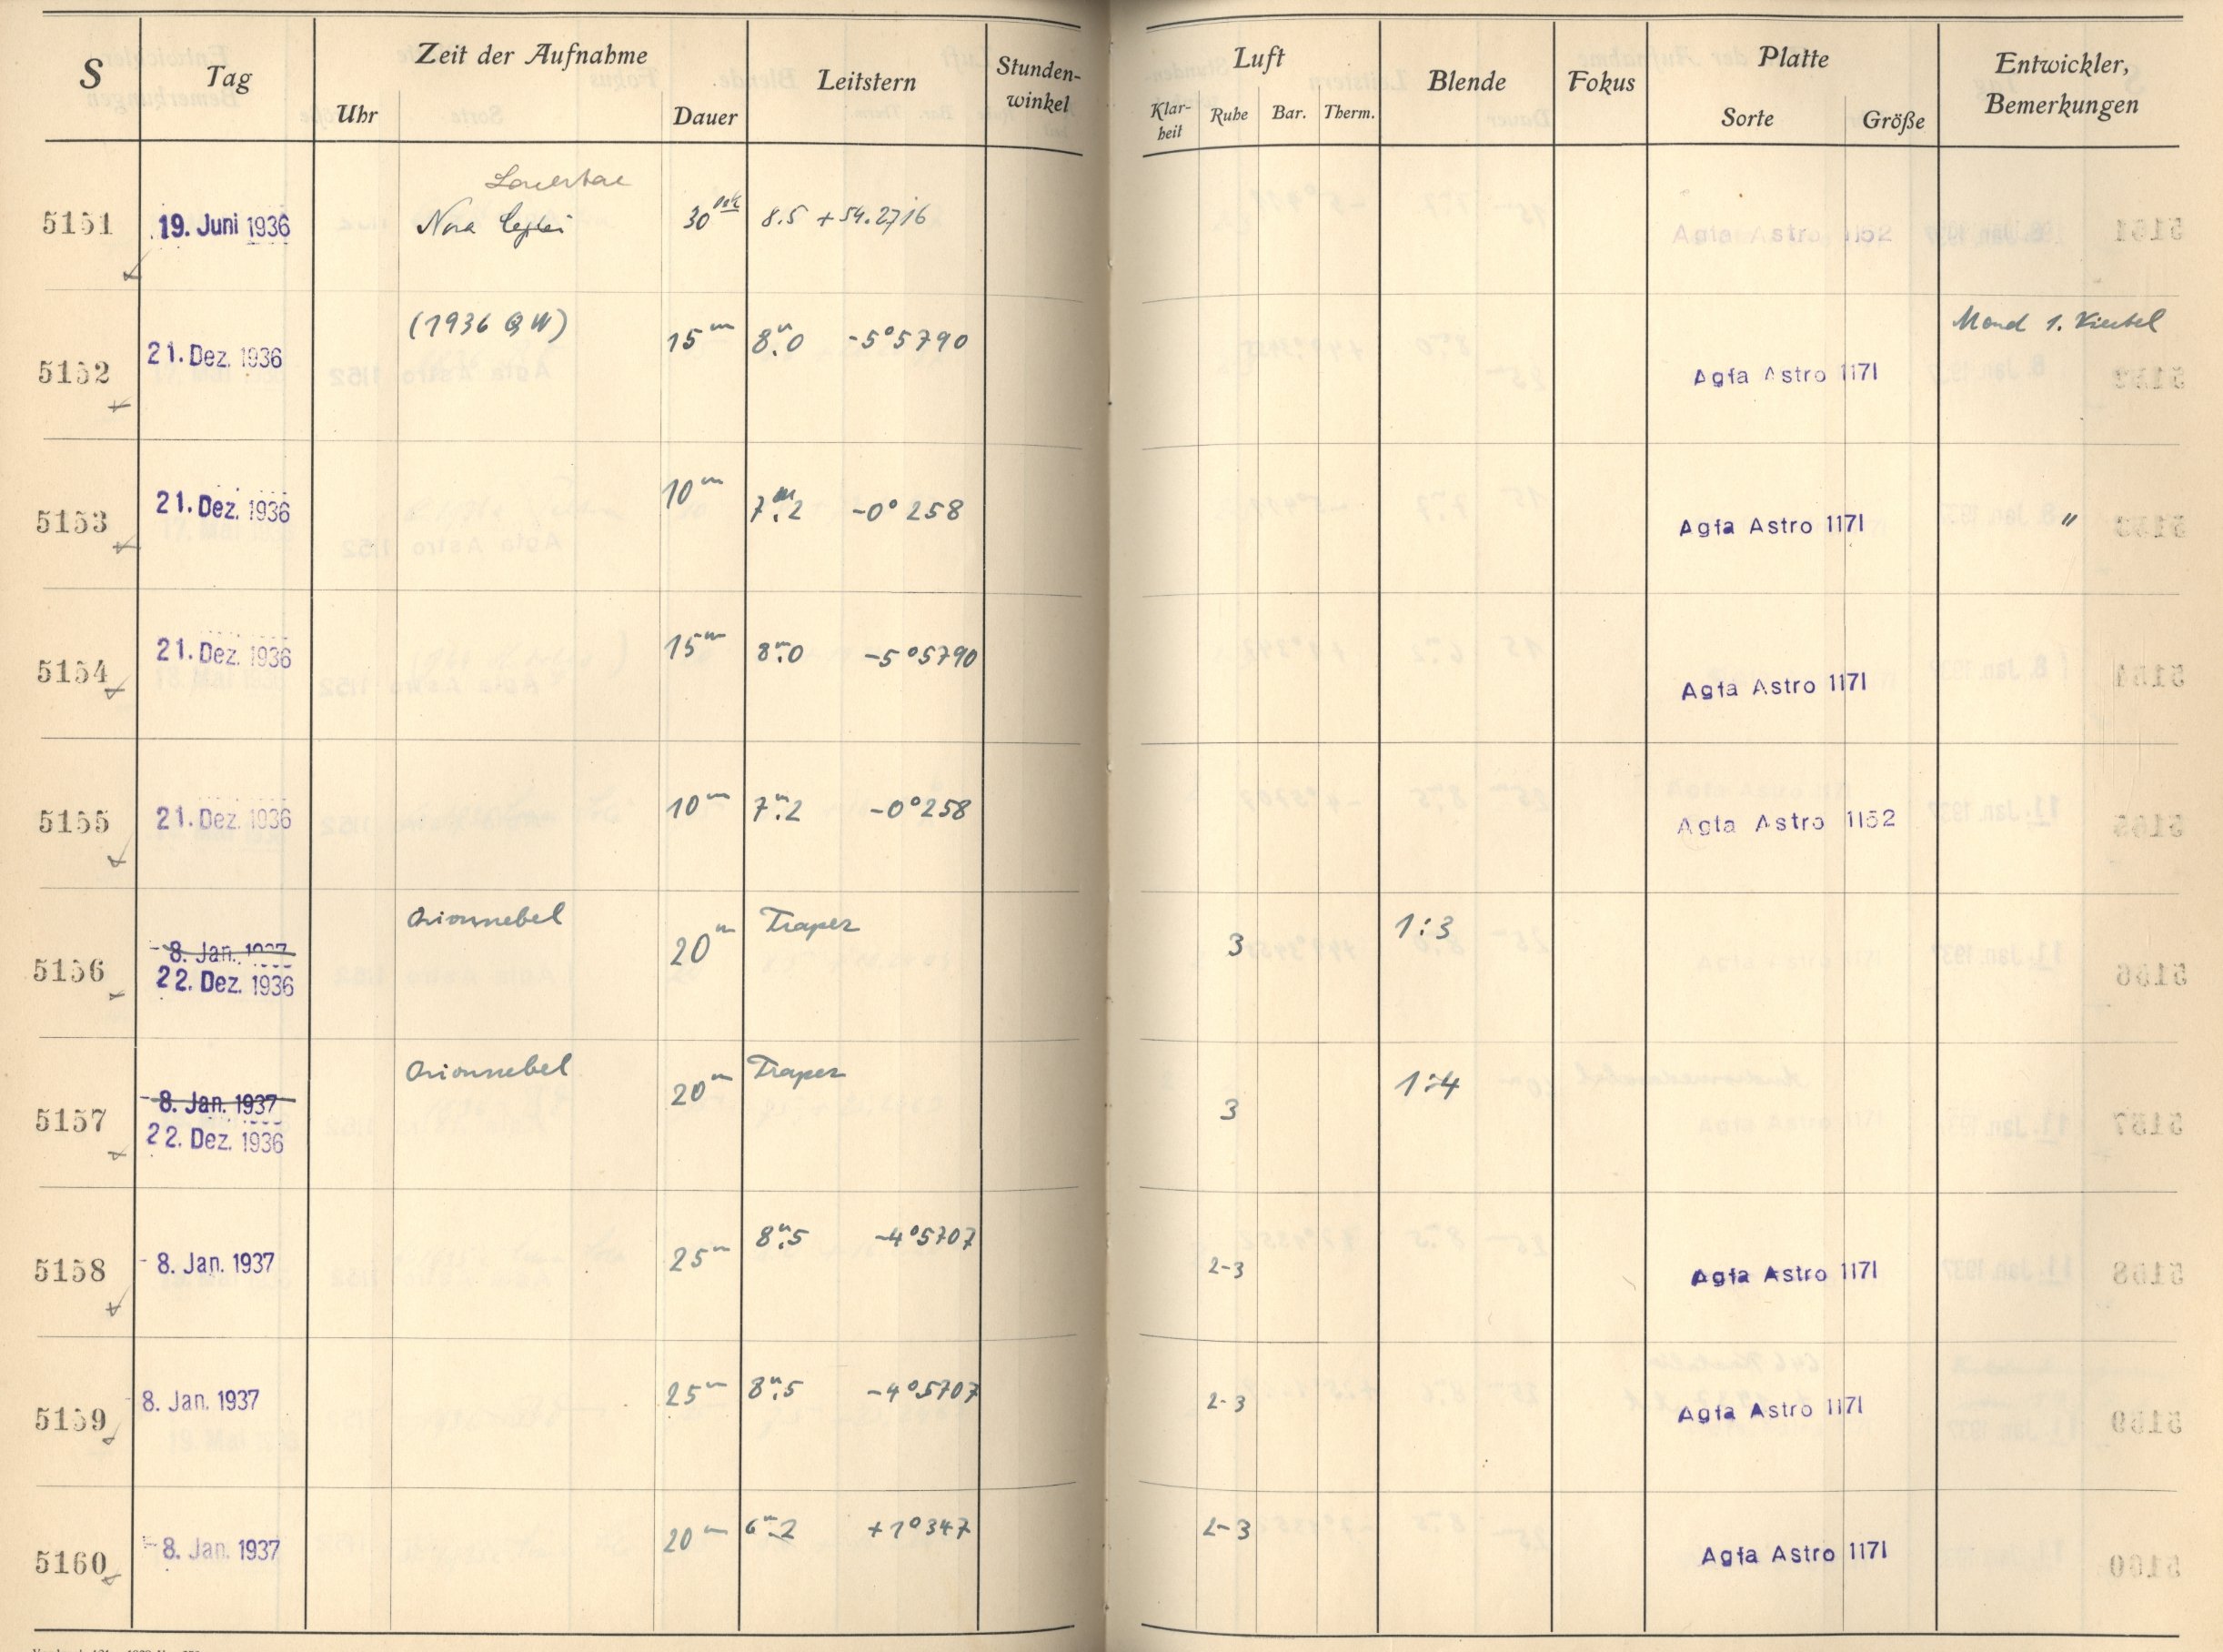 S Tag Zeit der Aufnahme Leitstern Stunden-winkel Luft Blende Fokus Platte Entwickler, Bemerkungen
Uhr Dauer Klar-heit Ruhe Bar. Therm. Sorte Größe
5151 19. Juni 1936 Nova 30 8.5 +54.2716 Agfa Astro 1152
5152 21. Dez. 1936 (1936 QW) 15m 8m.0 -5°5790 Agfa Astro 1171 Mond 1. Viertel
5153 21. Dez. 1936 10m 7m.2 -0°258 Agfa Astro 1171 "
5154 21. Dez. 1936 15m 8m.0 -5°5790 Agfa Astro 1171
5155 21. Dez. 1936 10m 7m.2 -0°258 Agfa Astro 1152
5156 - 8. Jan. 1937 Orionnebel 20m Trapez 3 1:3
22. Dez. 1936
5157 - 8. Jan. 1937 Orionnebel 20m Trapez 3 1:4
22. Dez. 1936
5158 - 8. Jan. 1937 25m 8m.5 -4°5707 2-3 Agfa Astro 1171
5159 - 8. Jan. 1937 25m 8m.5 -4°5707 2-3 Agfa Astro 1171
5160 - 8. Jan. 1937 20m 6m.2 +1°347 2-3 Agfa Astro 1171